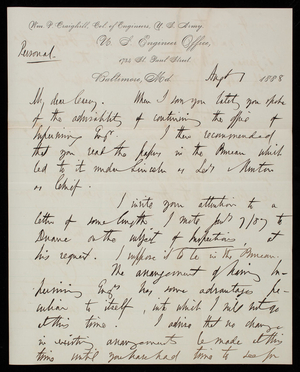 Wm. P. Craighill, Col. of Engineers, U. S. Army.
U. S. Engineer Office,
1725 St. Paul Street.
Personal.
Baltimore, Md. Augt 7 1888
My dear Casey. When I saw you lately you spoke
of the advisability of continuing the office of
Supervising Engr. I then recommended
that you read the papers in the Bureau which
led to it under Lincoln as
as Chief.
I invite your attention to a
letter of some length I wrote 7/87 to
Duane on the subject of Inspections at
his request. I suppose it to be in the Bureau.
The arrangement of having Su-
pervising Engrs has some advantages pe-
culiar to itself, into which I will not go
at this time. I advise that no change
in existing arrangements be made at this
time until you have had time to see for